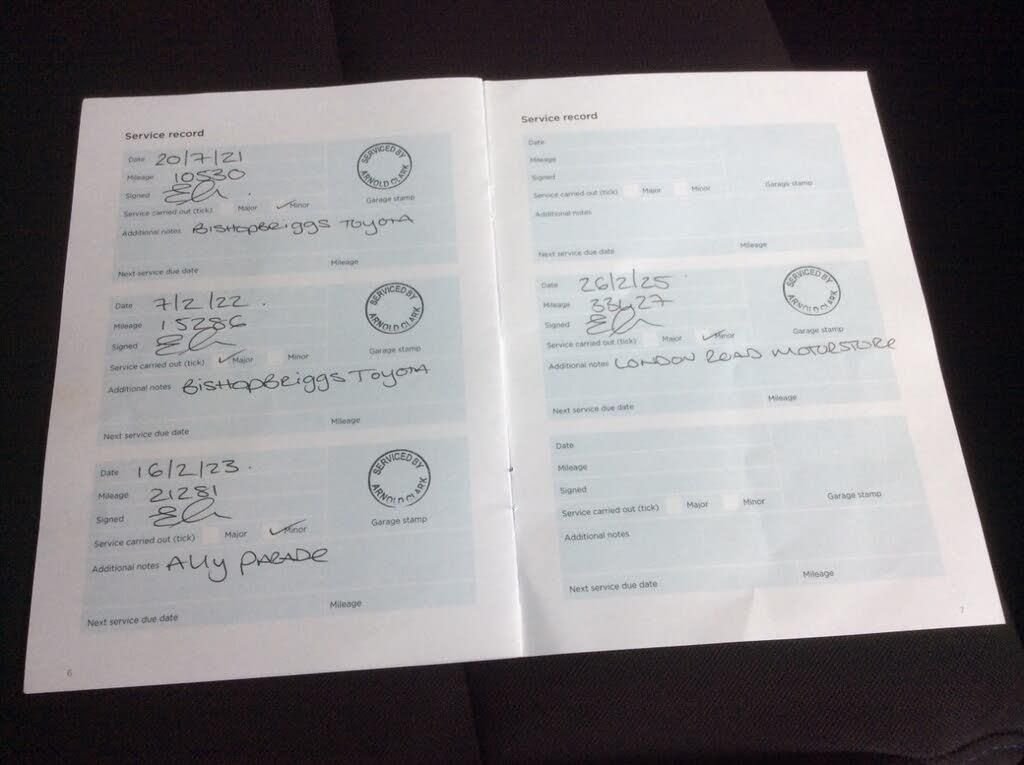 Service record
Date 20/7/21
Mileage 10530
Signed
Service carried out (tick) Major ✓ Minor
SERVICED BY ARNOLD CLARK
Garage stamp
Additional notes BISHOPBRIGGS TOYOTA
Next service due date Mileage
Date 7/2/22.
Mileage 15286
Signed
Service carried out (tick) ✓ Major Minor
SERVICED BY ARNOLD CLARK
Garage stamp
Additional notes BISHOPBRIGGS TOYOTA
Next service due date Mileage
Date 16/2/23.
Mileage 21281
Signed
Service carried out (tick) Major ✓ Minor
SERVICED BY ARNOLD CLARK
Garage stamp
Additional notes Ally PARADE
Next service due date Mileage
6
Service record
Date
Mileage
Signed
Service carried out (tick) Major Minor
Garage stamp
Additional notes
Next service due date Mileage
Date 26/2/25.
Mileage 33427
Signed
Service carried out (tick) Major ✓ Minor
SERVICED BY ARNOLD CLARK
Garage stamp
Additional notes LONDON ROAD MOTORSTORE
Next service due date Mileage
Date
Mileage
Signed
Service carried out (tick) Major Minor
Garage stamp
Additional notes
Next service due date Mileage
7